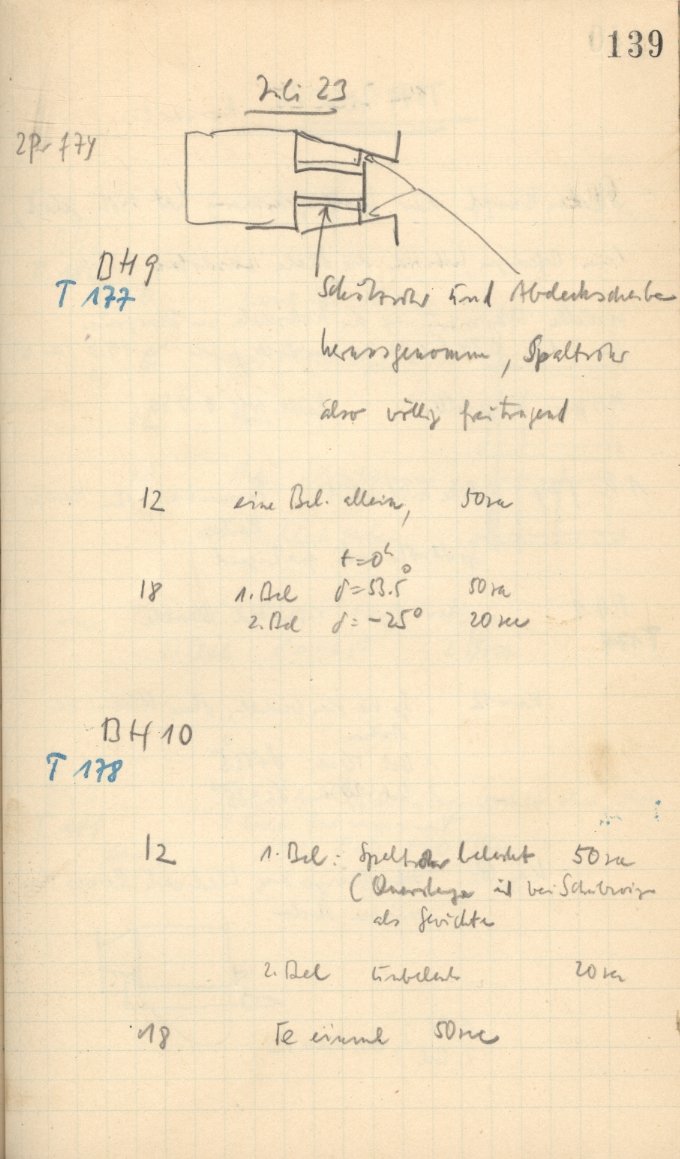 139
Juli 23
2Pr f74
BH9
T 177
Schutzrohr und Abdeckscheibe
herausgenommen, Spaltrohr
also völlig freitragend
12 eine Bel. allein, 50sec
t=0h
18 1. Bel δ=53.5° 50sec
2. Bel δ=-25° 20sec
BH 10
T 178
12 1. Bel: Spaltrohr belastet 50sec
( und bei
als Gewichte
2. Bel unbelast 20sec
18 Te einmal 50sec